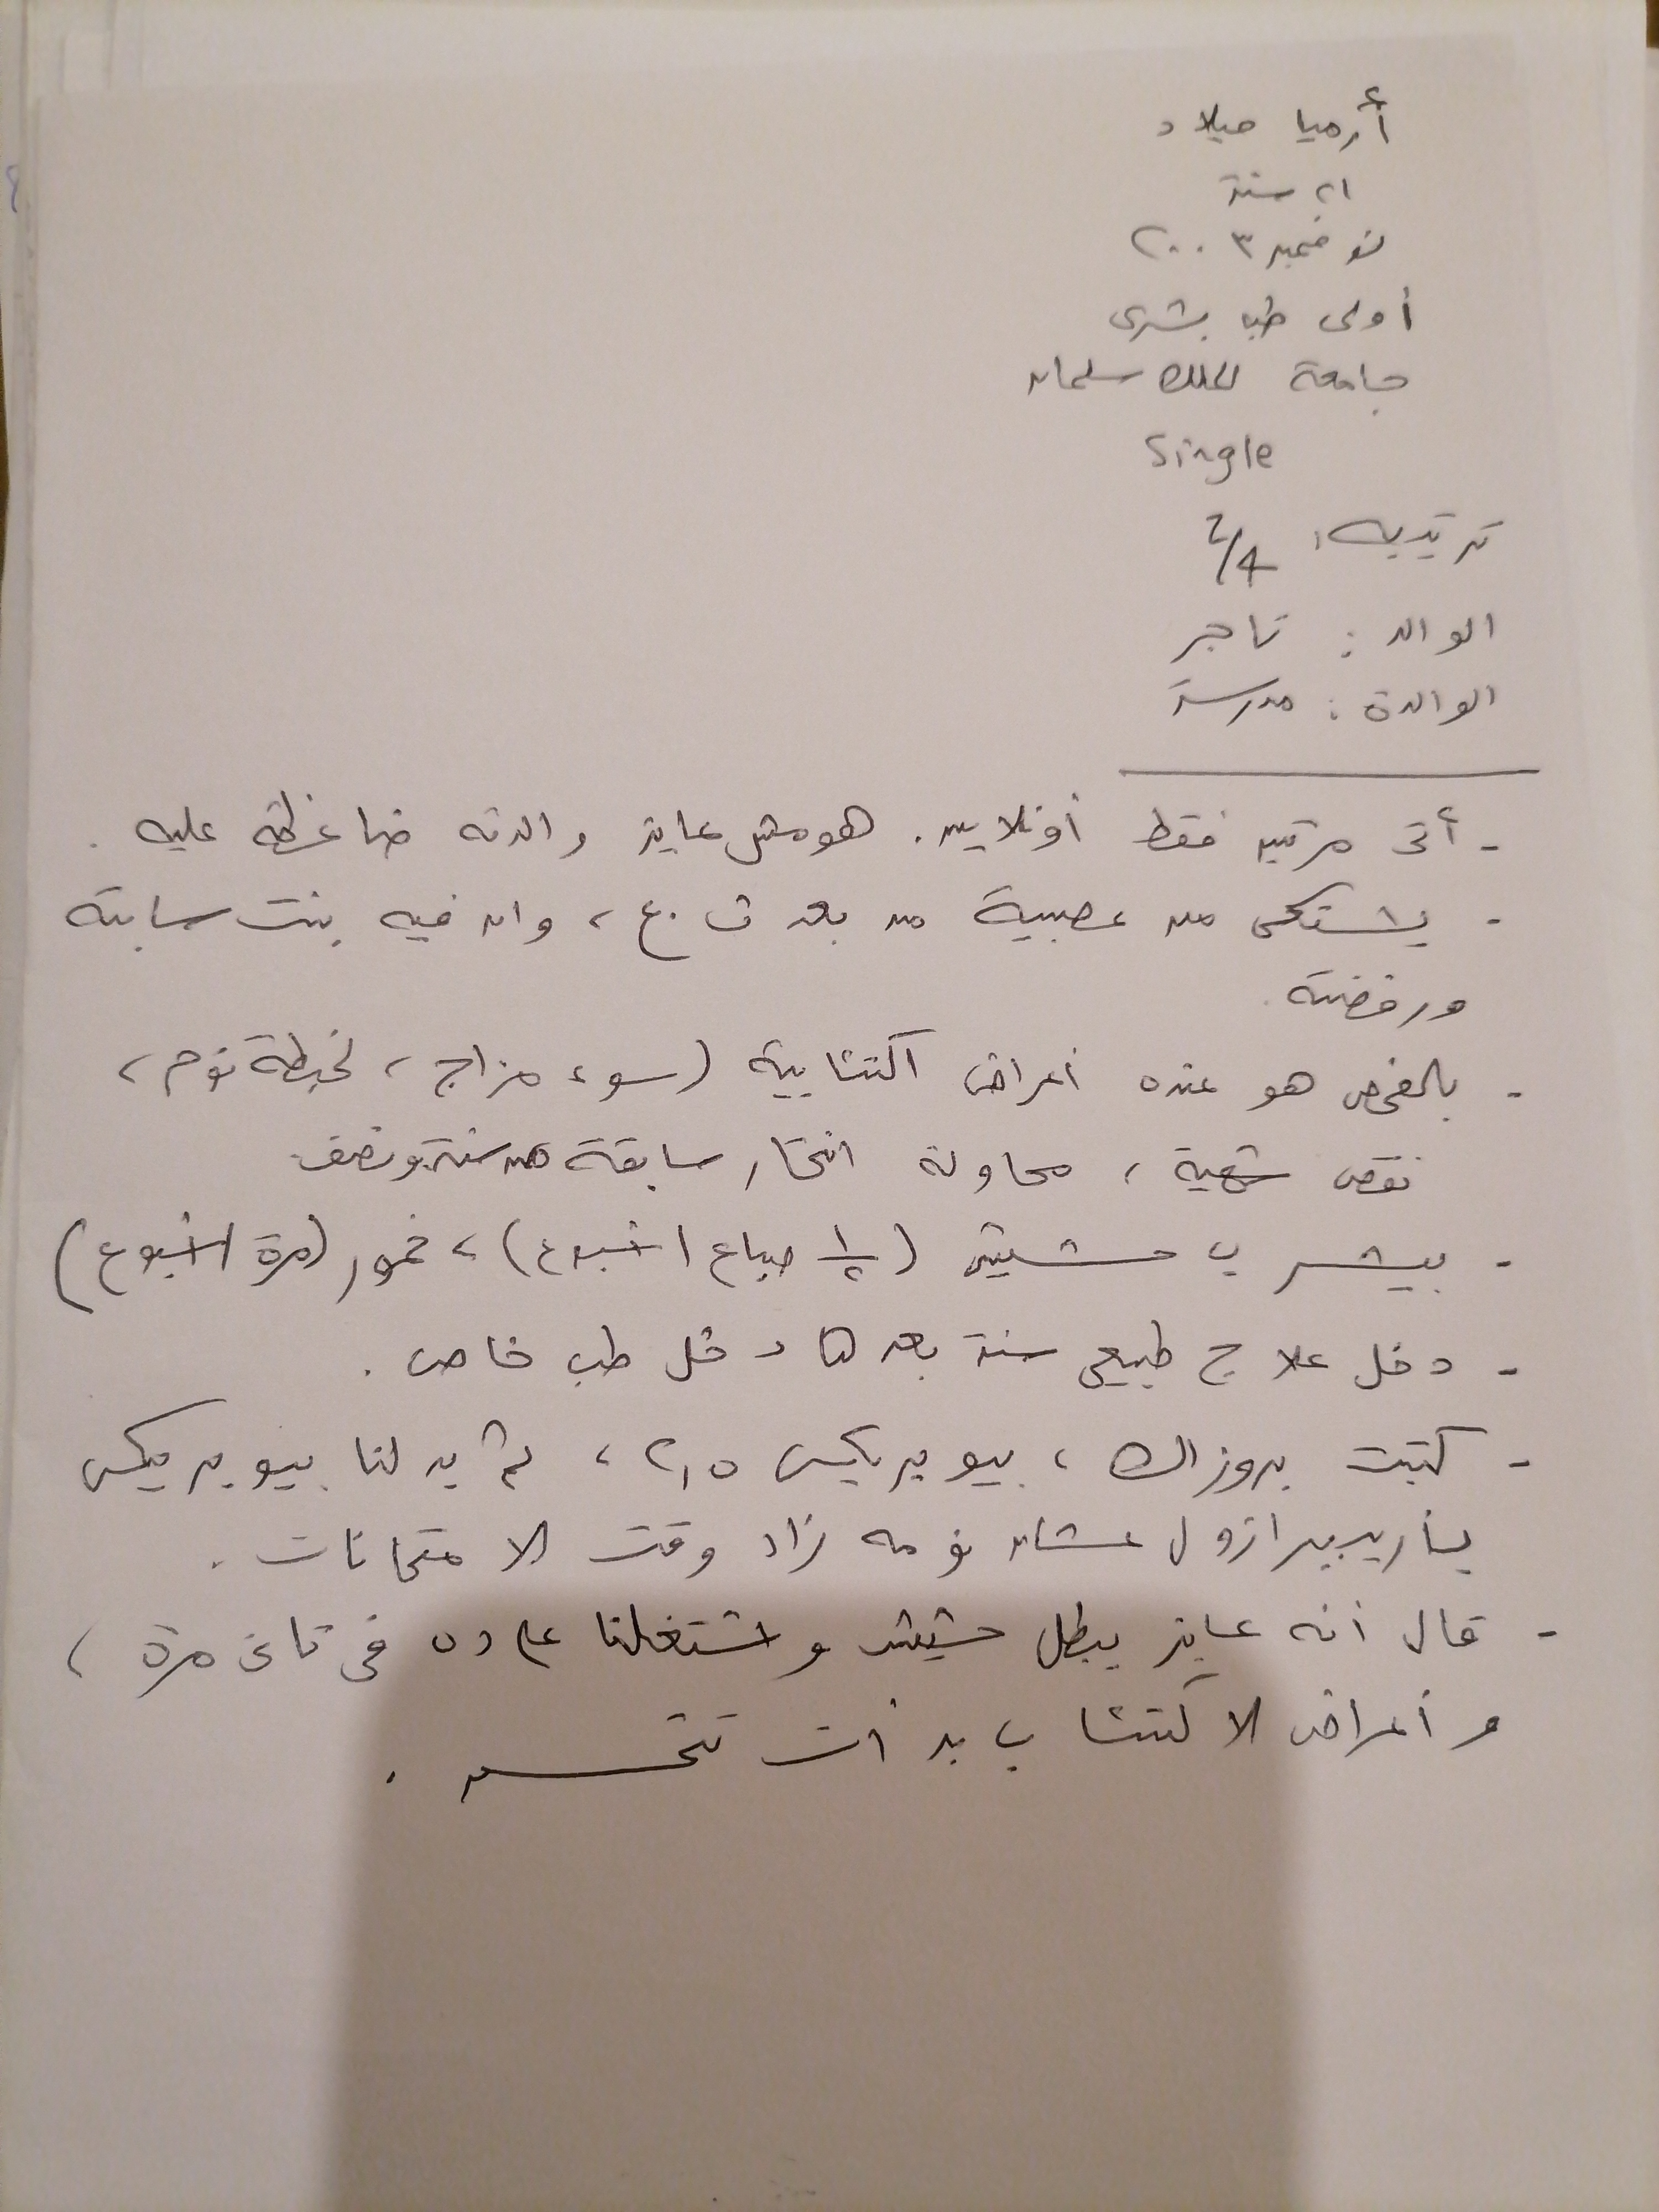 أرميا ميلاد
٢١ سنة
نوفمبر ٢٠٠٣
أولى طب بشرى
جامعة الملك سلمان
Single
ترتيبه: 2/4
الوالد : تاجر
الوالدة : مدرسة
- أتى مرتين فقط أونلاين. هو مش عايز والدته ضاغطة عليه .
- يشتكى من عصبية من بعد ث.ع، وان فيه بنت سابته
ورفضته.
- بالفحص هو عنده أعراض اكتئابية (سوء مزاج، لخبطة نوم،
نقص شهية، محاولة انتحار سابقة من سنة ونصف
- بيشرب حشيش (½ صباع اسبوع)، خمور (مرة اسبوع)
- دخل علاج طبيعى سنة بعدها دخل طب خاص .
- كتبت بروزاك، بيوبريكس ٢,٥، ثم بدلنا بيوبريكس
بأريبيبرازول عشان نومه زاد وقت الامتحانات .
- قال أنه عايز يبطل حشيش واشتغلنا على ده فى تانى مرة،
وأعراض الاكتئاب بدأت تتحسن .